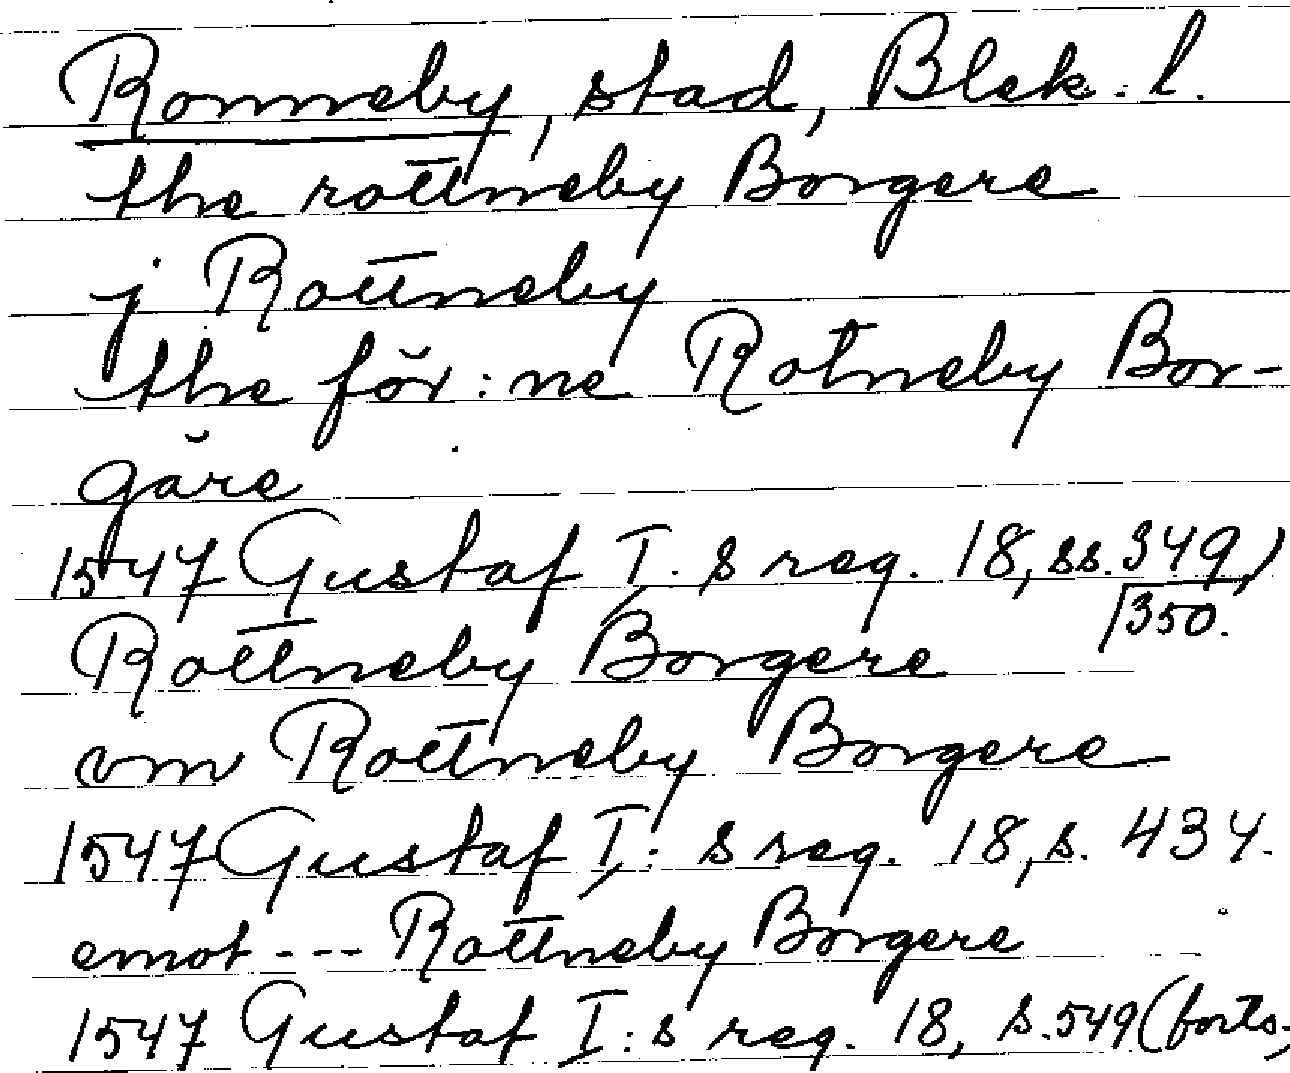 Ronneby, stad, Blek. l.
the rottneby Borgere
j Rottneby
the för:ne Rotneby Bor-
gåre
1547 Gustaf I:s reg. 18, ss. 349,
350.
Rottneby Borgere
om Rottneby Borgere
1547 Gustaf I:s reg. 18, s. 434.
emot --- Rottneby Borgere
1547 Gustaf I:s reg. 18, s. 549 (forts.)